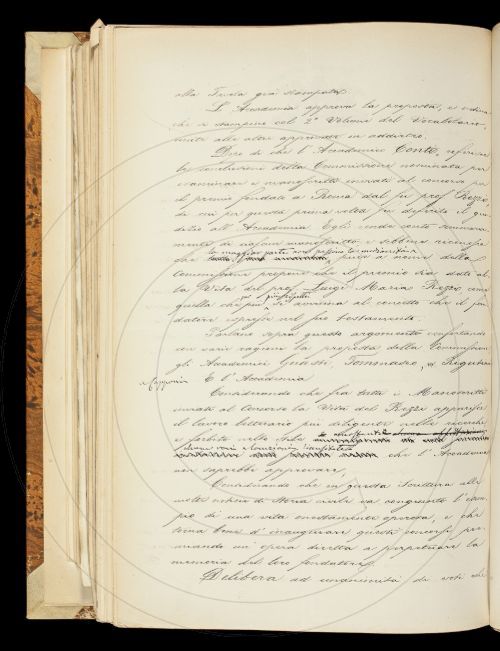 alla Tavola già stampata.
L'Accademia approva la proposta, e ordina
che si stampino col 2º Volume del Vocabolario,
unite alle altre approvate in addietro.
Dopo di che l'Accademico Conti, referisce
le conclusioni della Commissione nominata per
esaminare i manoscritti inviati al concorso per
il premio fondato a Roma dal fu prof. Rezzi,
di cui per questa prima volta fu deferito il giu
dizio all'Accademia. Egli rende conto sommaria
mente di ciascun manoscritto e sebbene
la maggior parte non possono
passa a nome della
Commissione proporre che il premio sia dato alla
la Vita del prof. Luigi Maria Rezzi come
quella che più si avvicina al concetto che il fon
datore espresse nel suo testamento.
Parlano sopra questo argomento confortando
con varie ragioni la proposta della Commissione
gli Accademici Giusti, Tommaseo, Rigutini
e Capponi E l'Accademia
Considerando che fra tutti i Manoscritti
inviati al Concorso la Vita del Rezzi apparisce
il lavoro letterario più diligente nelle ricerche
e forbito nello stile
che l'Accademia
non saprebbe approvare,
Considerando che in questa Scrittura alle
molte notizie di Storia civile va congiunto l'esem
pio di una vita onestamente operosa, e che
torna bene d'inaugurare questi concorsi pre
miando un'opera diretta a perpetuare la
memoria del loro fondatore,
Delibera ad unanimità di voti che